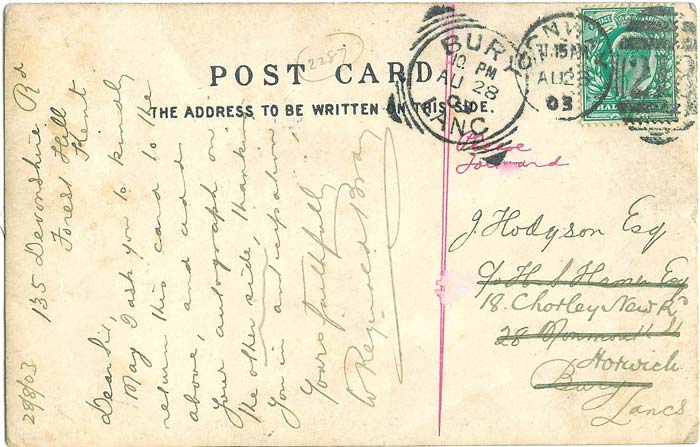 POST CARD.
THE ADDRESS TO BE WRITTEN ON THIS SIDE.
(2287)
BURY
10 PM
AU 28
03
LANC.
GREENWICH
11.15 AM
AU 28
03
Please
forward
135 Devonshire Rd
Forest Hill
Kent
28/8/03
Dear Sir,
May I ask you to kindly
return this card to the
above, and add
your autograph on
the other side, thanking
you in anticipation
Yours faithfully
W Reginald Bray
J. Hodgson Esq
c/o H S Hamer Esq
18. Chorley New Rd
28 Monmouth St
Horwich
Bury
Lancs